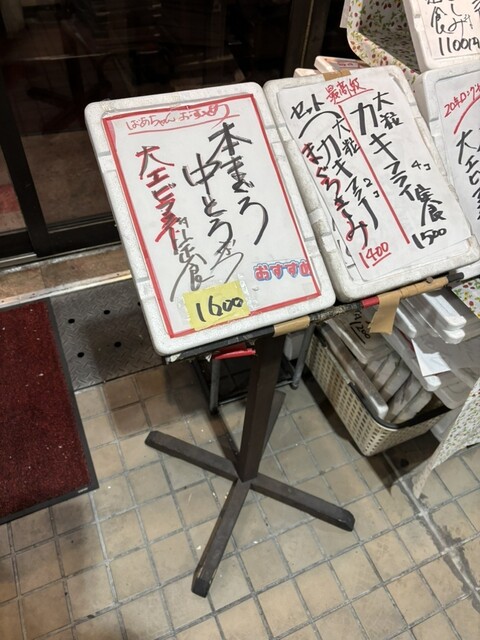 ばあちゃんおすすめ
本まぐろ
中とろ
大エビフライ
定食
おすすめ
1600
最高級
大粒
カキフライ
4コ
定食
1500
セット
大粒
カキフライ2コ
まぐろさしみ
1400
定食
1100円
20年
大エ